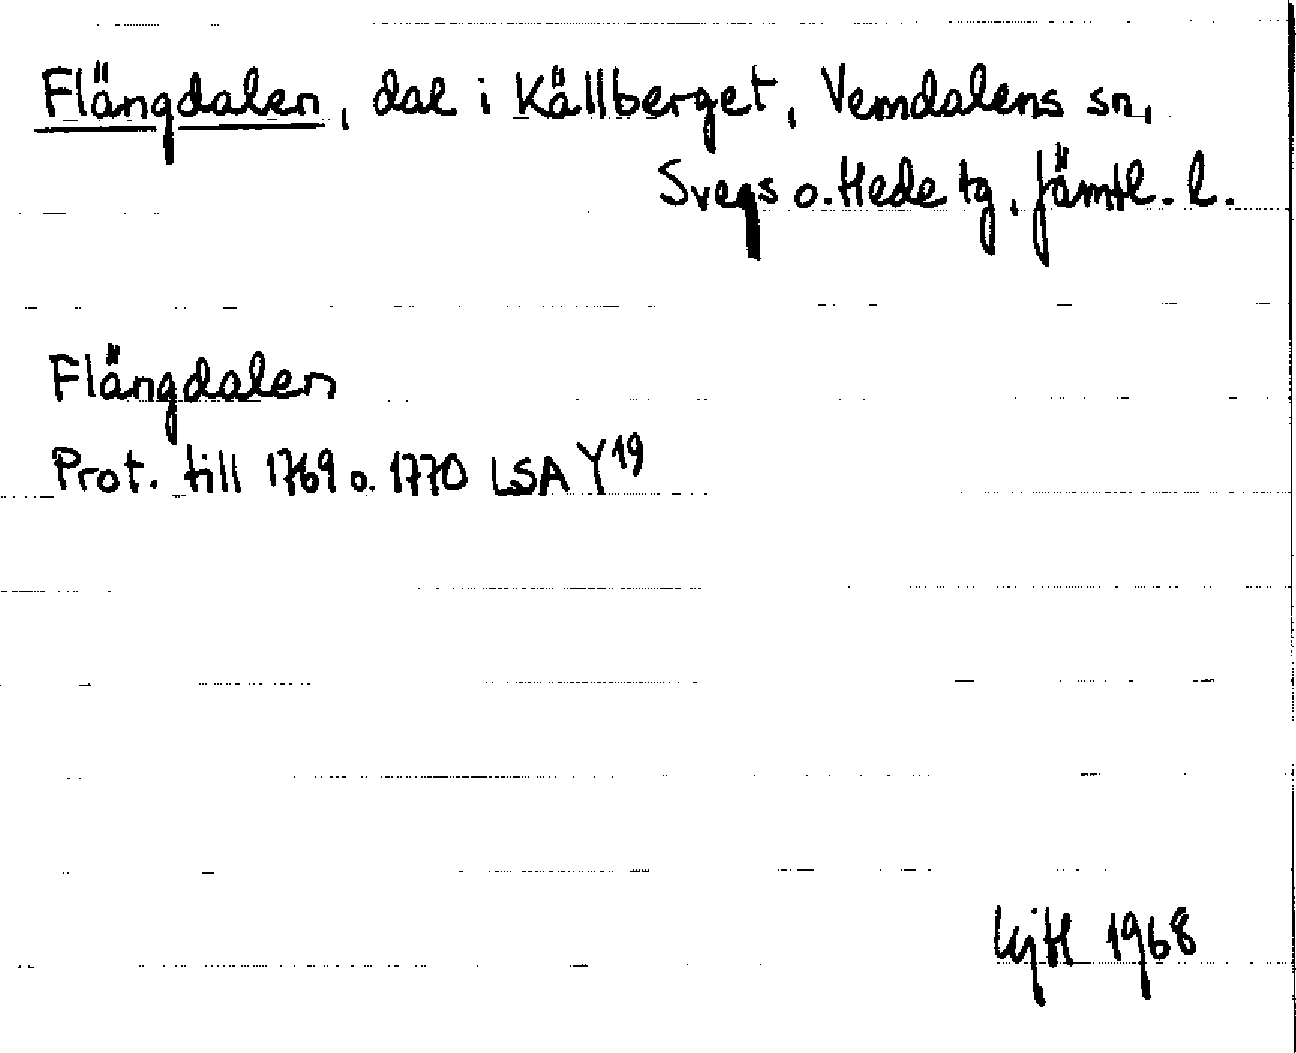 Flängdalen, dal i Källberget, Vemdalens sn,
Svegs o. Hede tg, Jämtl. l.
Flängdalen
Prot. till 1769 o. 1770 LSA Y19
1968